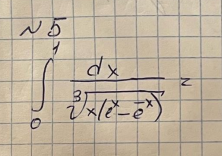 № 5
∫₀¹ dx / ∛(x(eˣ - e⁻ˣ)) =